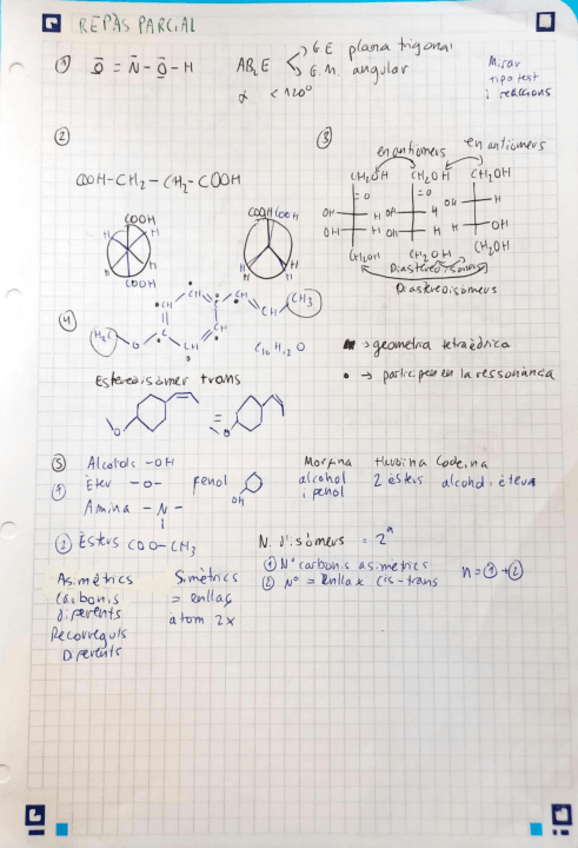 REPÀS PARCIAL
① O = N - O - H
AB₂E
G.E plana trigonal
G.M. angular
α < 120º
Mirar
tipo test
i reaccions
②
COOH-CH₂-CH₂-COOH
COOH
H
H
H
H
COOH
COOH COOH
H
H
H
H
③
enantiòmers
enantiòmers
CH₂OH CH₂OH CH₂OH
=O =O OH H
OH H OH H
OH H OH H H OH
CH₂OH CH₂OH CH₂OH
Diastereoisòmers
Diastereoisòmers
④
CH CH CH CH₃
CH CH
H₃C O C CH
CH
C₁₀H₁₂O
→ geometria tetraèdrica
• → participen en la ressonància
Estereoisòmer trans
O = O
⑤ Alcohols -OH
Èter -O- fenol
OH
Amina - N -
Morfina Heroïna Codeïna
alcohol 2 èsters alcohol i èter
i fenol
② Èsters COO-CH₃
N. d'isòmers = 2ⁿ
① Nº carbonis asimètrics
② Nº = enllaç cis-trans
n=①+②
Asimètrics Simètrics
Carbonis = enllaç
diferents àtom 2x
Recorreguts
Diferents